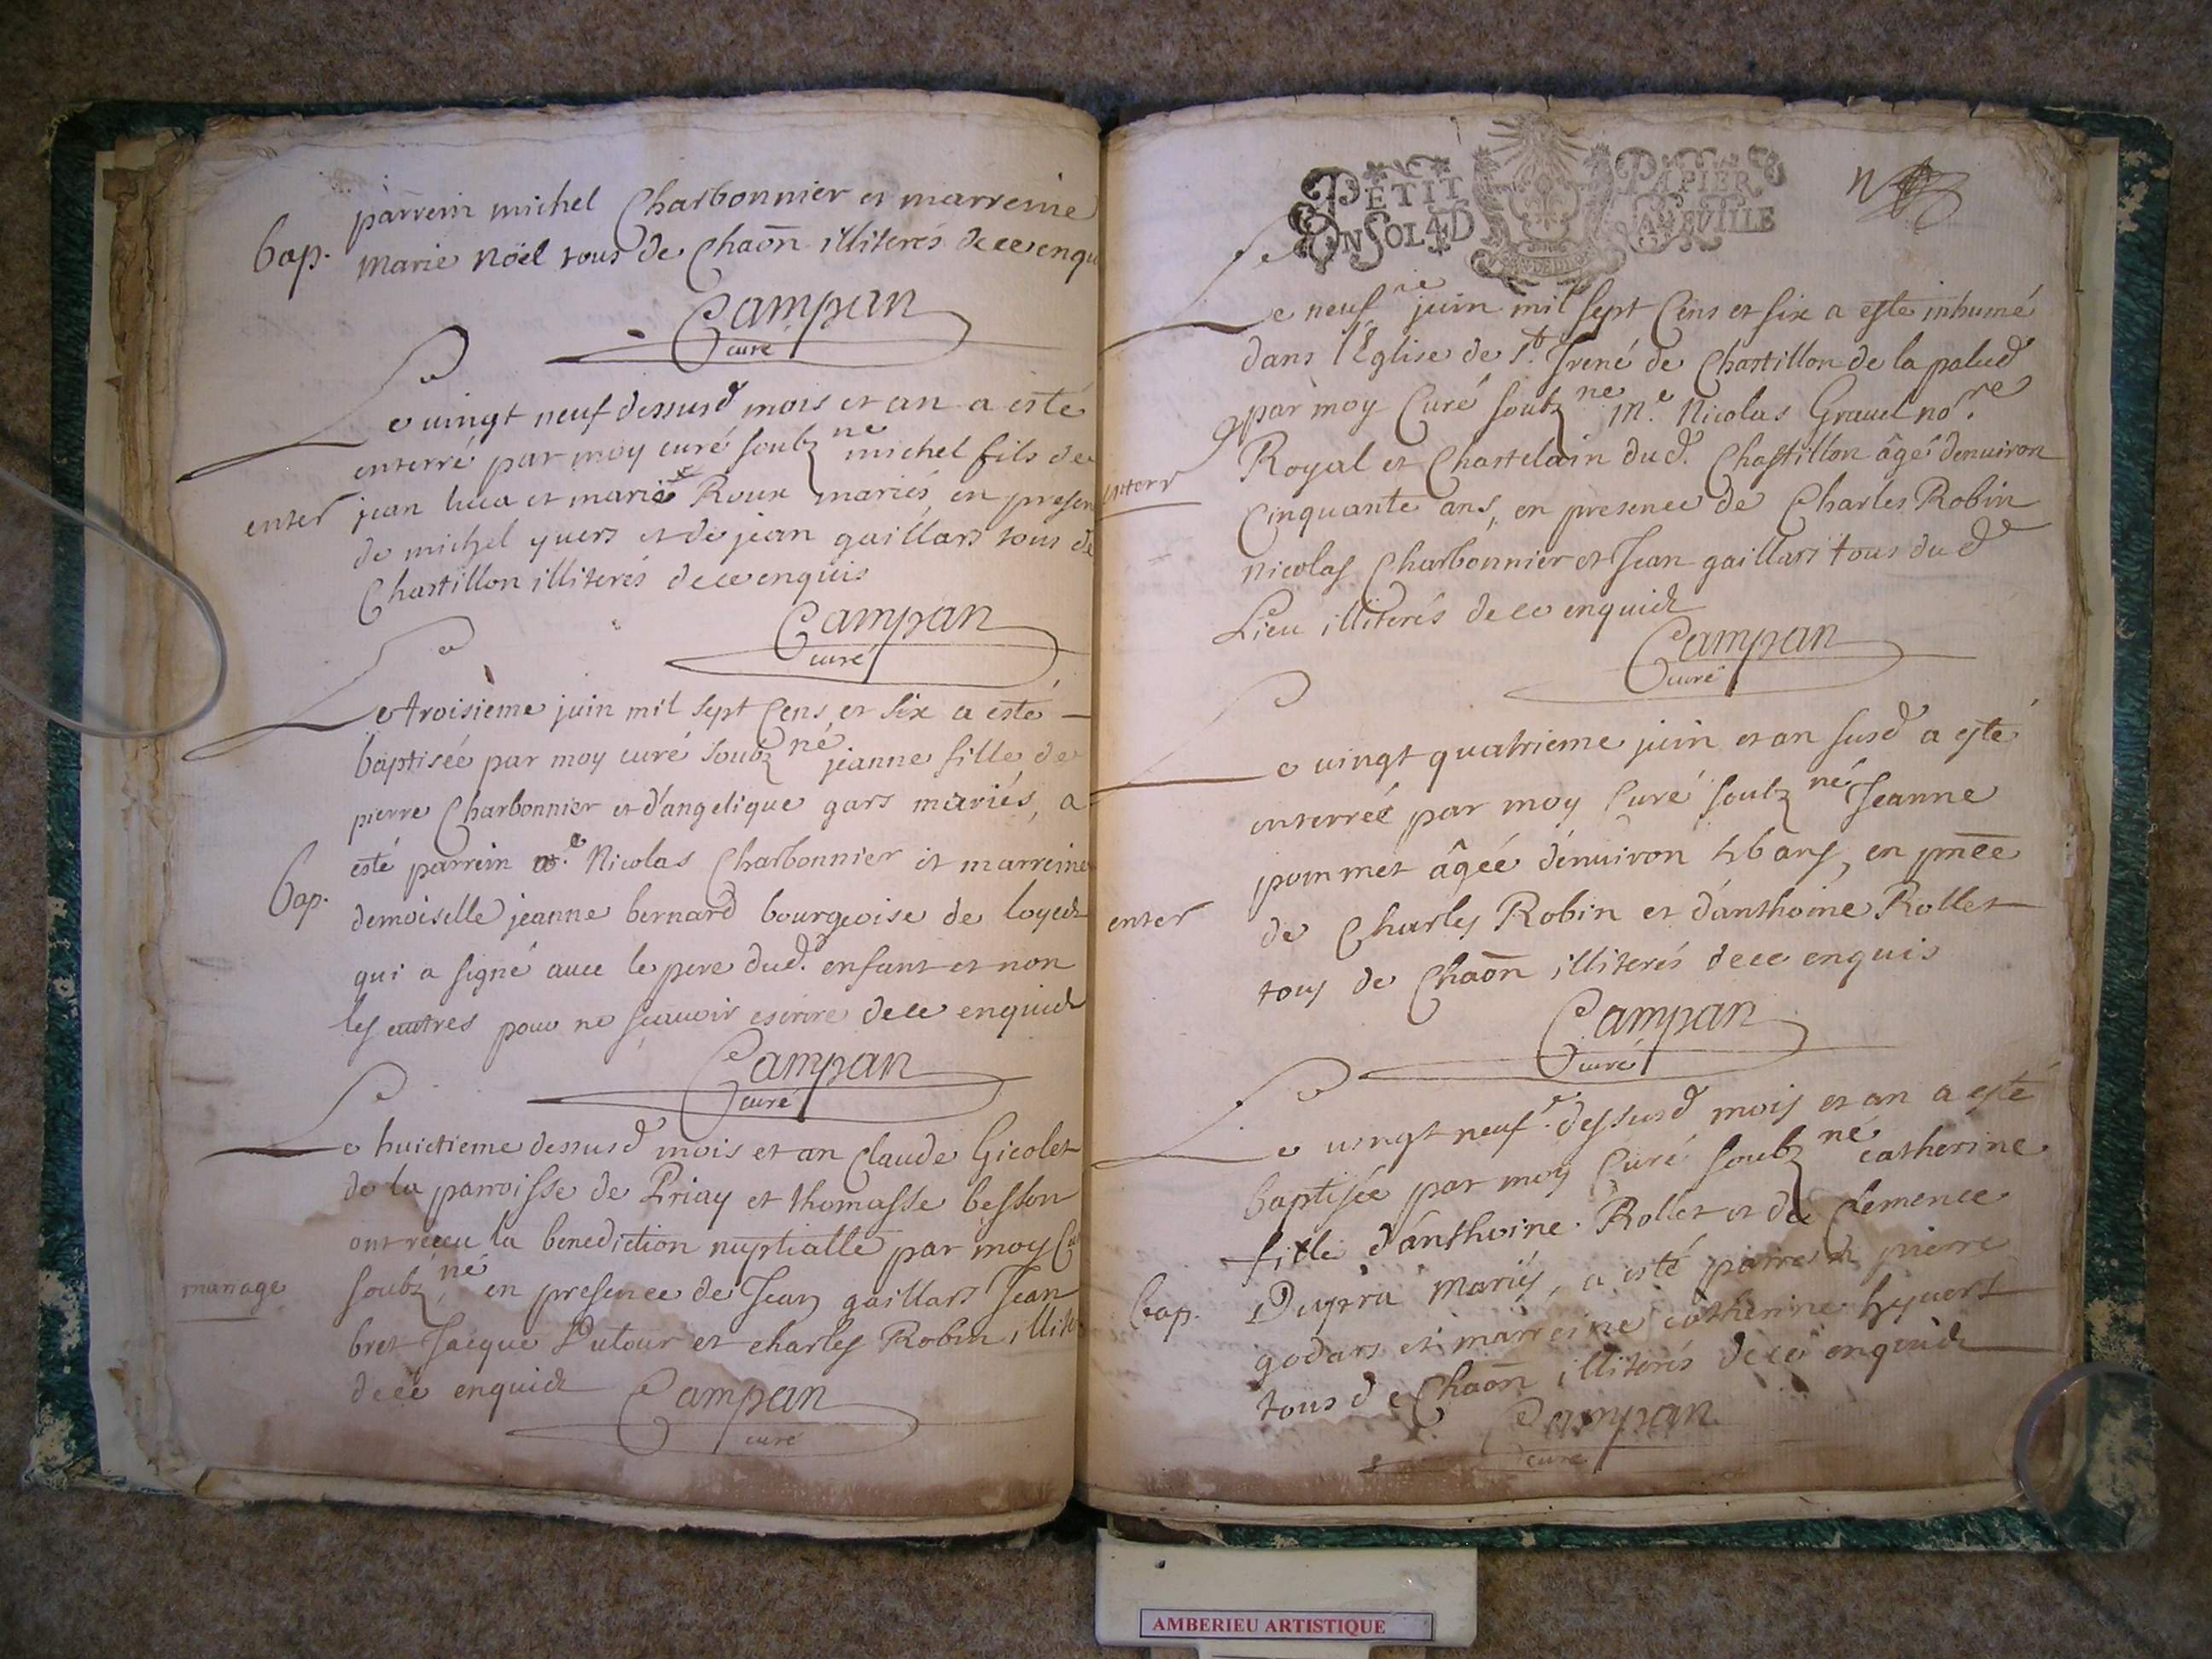 parrein michel Charbonnier et marreine
Bap. Marie Nöel tous de Chaõn illiterés de ce enqu
Campan
curé
Le vingt neuf dessusd mois et an a esté
enterré par moy curé soubz né michel fils de
enter jean luca et marie Roux mariés, en presen
de michel yuers et de jean gaillars tous de
Chastillon illiterés de ce enquis
Campan
curé
Le troisieme juin mil sept Cens et six a esté
baptisée par moy curé soubz né jeanne fille de
pierre Charbonnier et d'angelique gars mariés, a
esté parrein Nicolas Charbonnier et marreine
Bap. demoiselle jeanne bernard bourgeoise de loyech
qui a signé auec le pere dud. enfant et non
les autres pour ne sçauoir escrire de ce enquich
Campan
curé
Le huictieme dessusd mois et an Claude Gicolet
de la parroisse de Priay et thomasse besson
ont receu la benediction nuptialle par moy Cu
mariage soubz né, en presence de Jean gaillars Jean
bret Jacque Dutour et charles Robin illite
de ce enquich Campan
curé
PETIT PAPIER
EN SOL 4D LA FEUILLE
Le neuf me juin mil sept Cens et six a esté inhumé
dans l'Eglise de St. Irené de Chastillon de la palud
par moy Curé soubz né Me. Nicolas Grauel nore.
enterr Royal et Chastelain dud. Chastillon âgé d'enuiron
Cinquante ans, en presence de Charles Robin
nicolas Charbonnier et Jean gaillars tous dud
Lieu illiterés de ce enquich
Campan
curé
Le vingt quatrieme juin et an susd a esté
enterrée par moy Curé soubz né Jeanne
pommet âgée d'enuiron 46 ans, en pnce
enter de Charles Robin et d'anthoine Rollet
tous de Chaõn illiterés de ce enquis
Campan
curé
Le vingt neuf e. dessusd mois et an a esté
baptisée par moy Curé soubz né catherine
fille d'anthoine Rollet et de Clemence
Bap. Dupra Mariés, a esté parrein pierre
godars et marreine catherine hyuert
tous de Chaõn illiterés de ce enquich
Campan
curé
AMBERIEU ARTISTIQUE